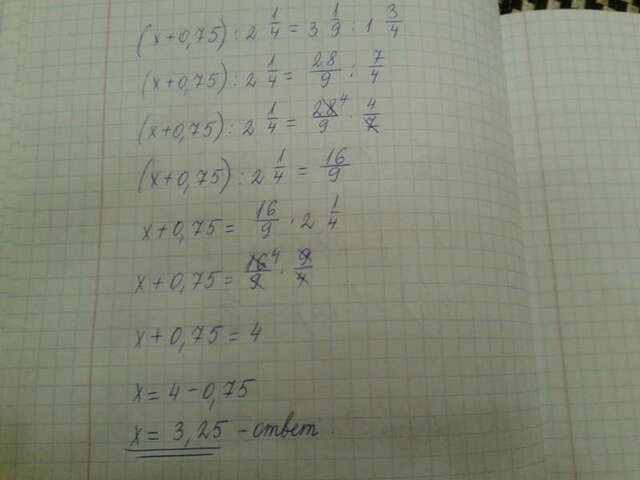 (x+0,75) : 2 1/4 = 3 1/9 : 1 3/4
(x+0,75) : 2 1/4 = 28/9 : 7/4
(x+0,75) : 2 1/4 = 28 4/9 · 4/7
(x+0,75) : 2 1/4 = 16/9
x+0,75 = 16/9 · 2 1/4
x+0,75 = 16 4/9 · 9/4
x+0,75 = 4
x = 4 - 0,75
x = 3,25 - ответ.